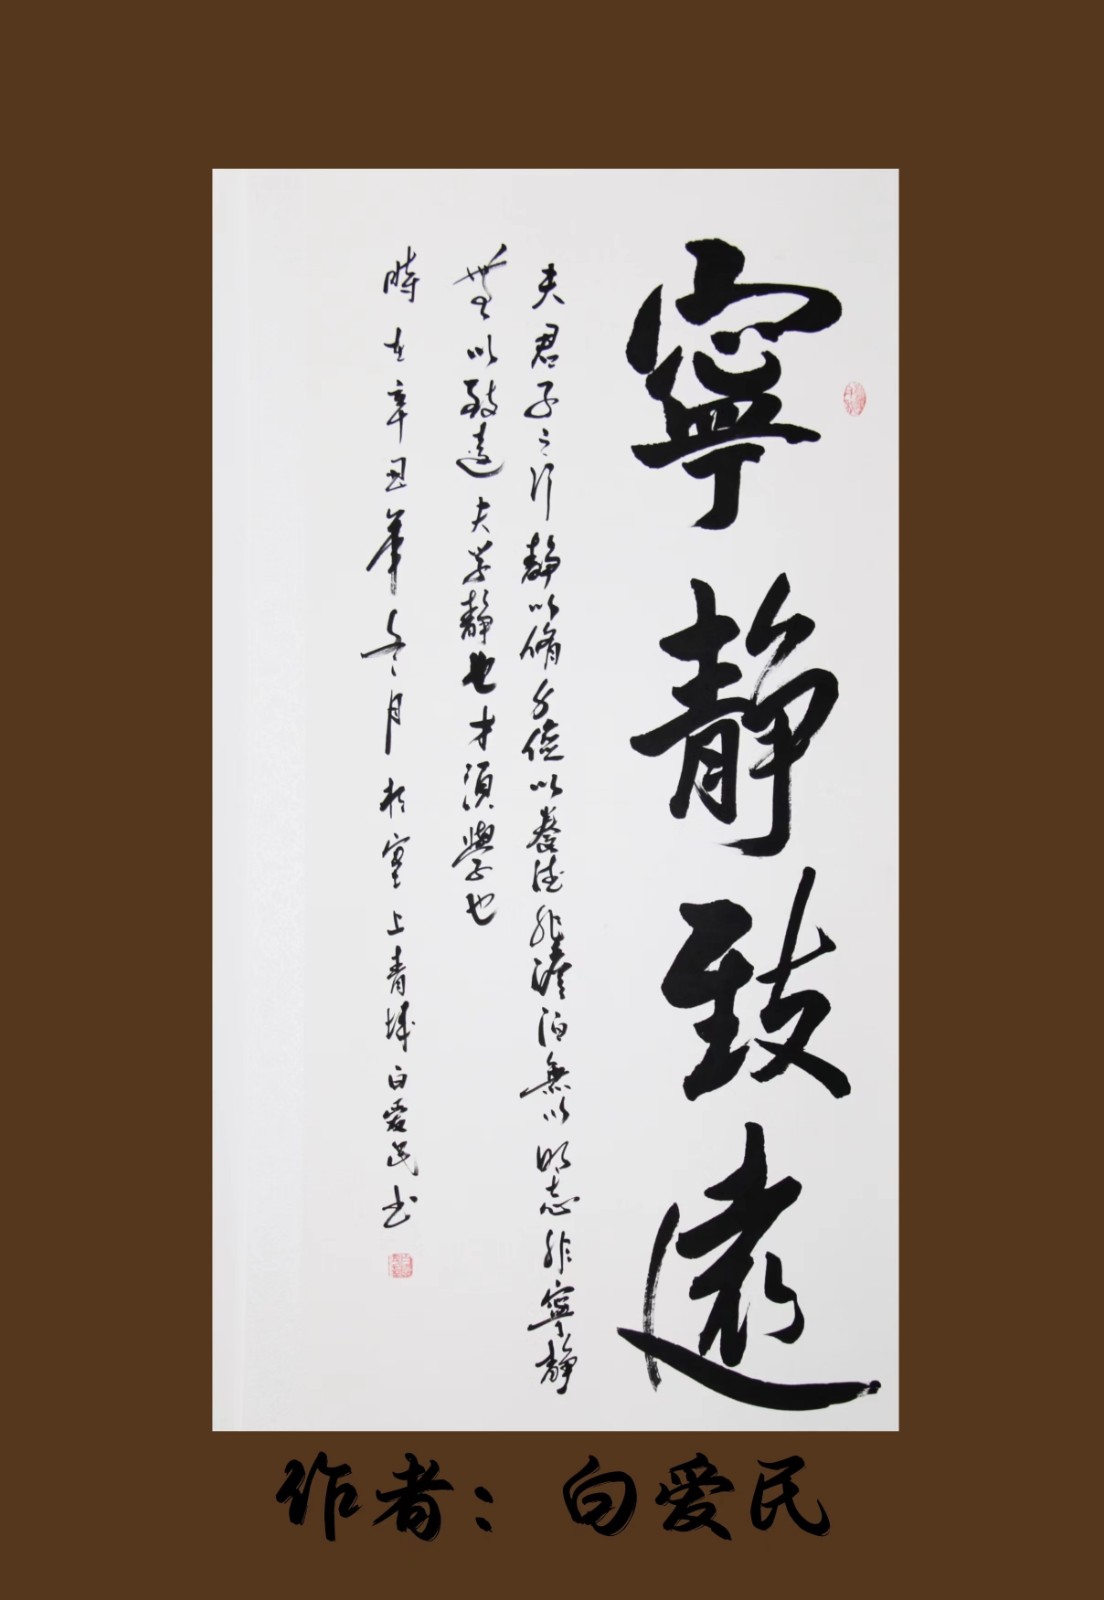 寧靜致遠
夫君子之行靜以脩身儉以養德非澹泊無以明志非寧靜
無以致遠夫学靜也才須學也
時在辛丑年冬月於塞上青城白爱民书
作者：白爱民